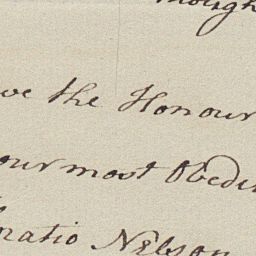 though
ve the Honour
our most Obedie
ratio Nelson